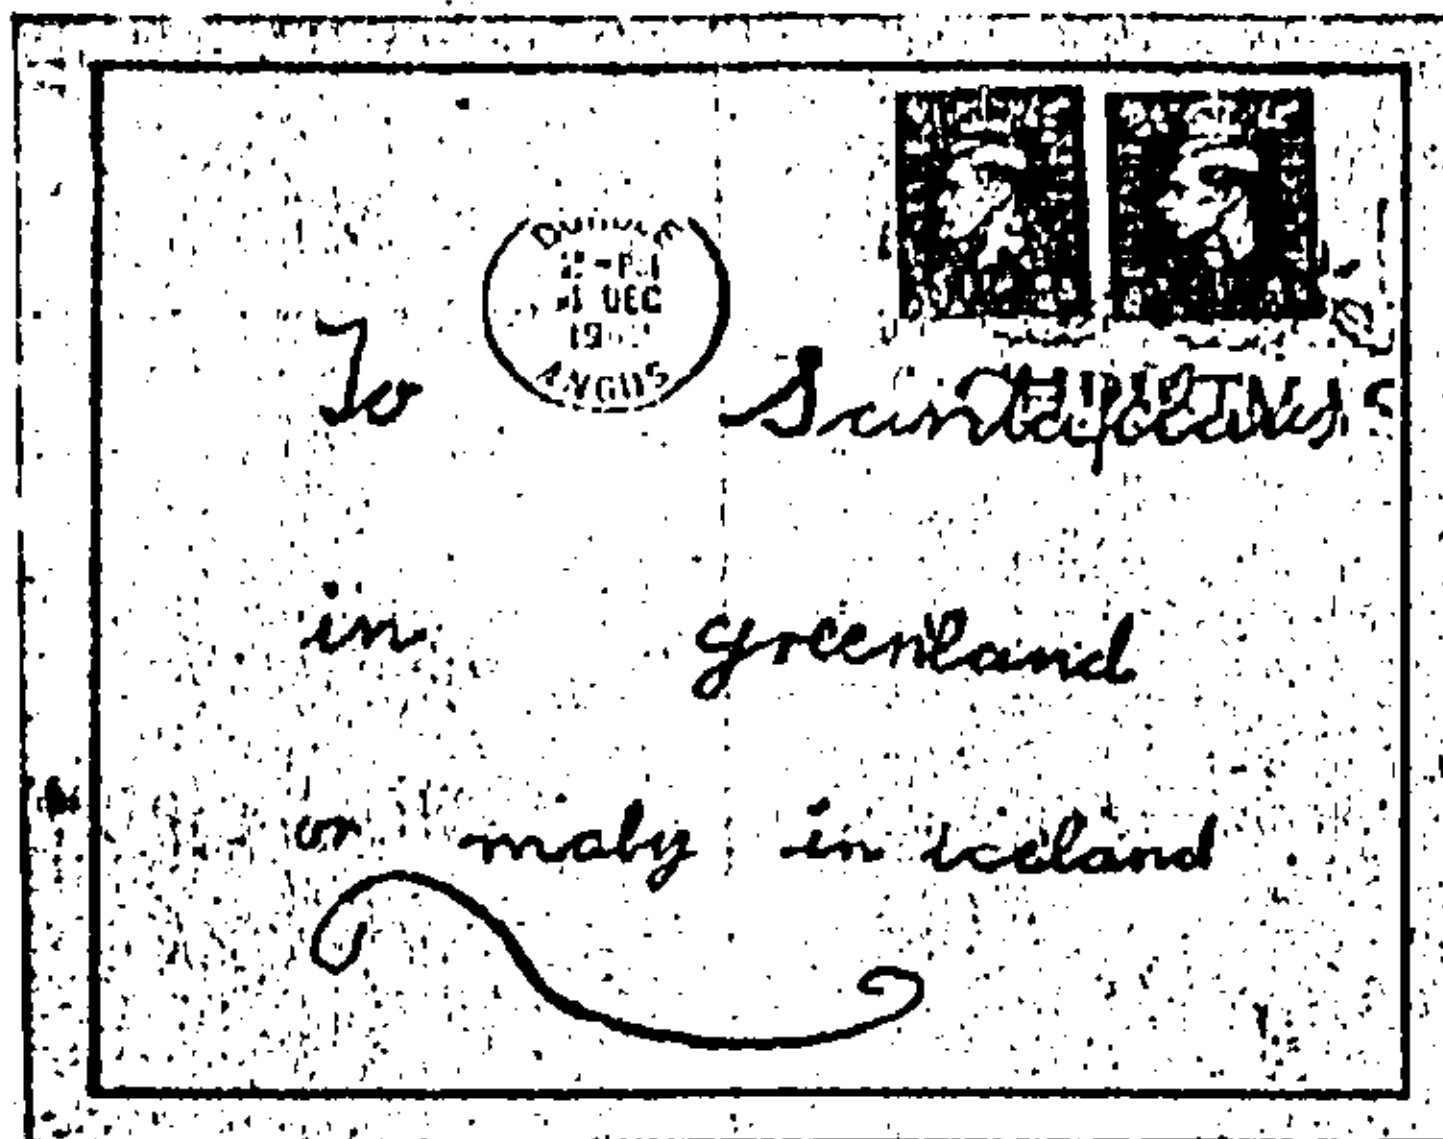 DUNDEE
DEC
ANGUS
To Santa Claus
in greenland
or maby in iceland